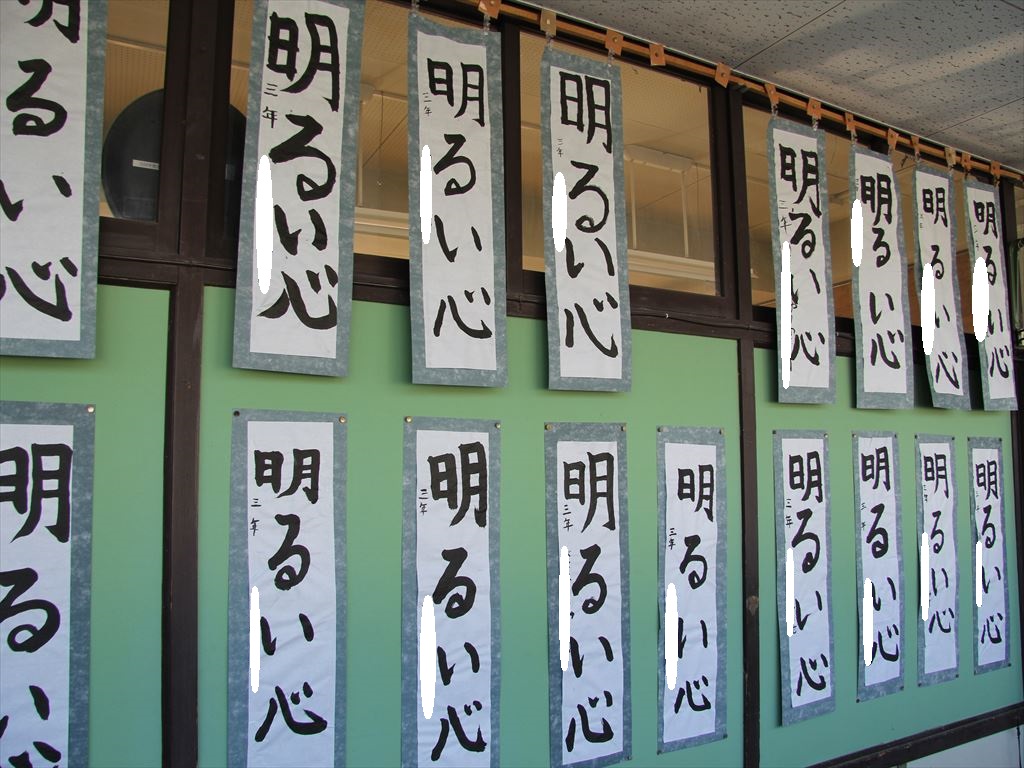 明るい心
明るい心
三年
明るい心
三年
明るい心
三年
明るい心
三年
明るい心
明るい心
明るい心
明るい
明るい心
三年
明るい心
三年
明るい心
三年
明るい心
三年
明るい心
三年
明るい心
三年
明るい心
三年
明るい心
三年